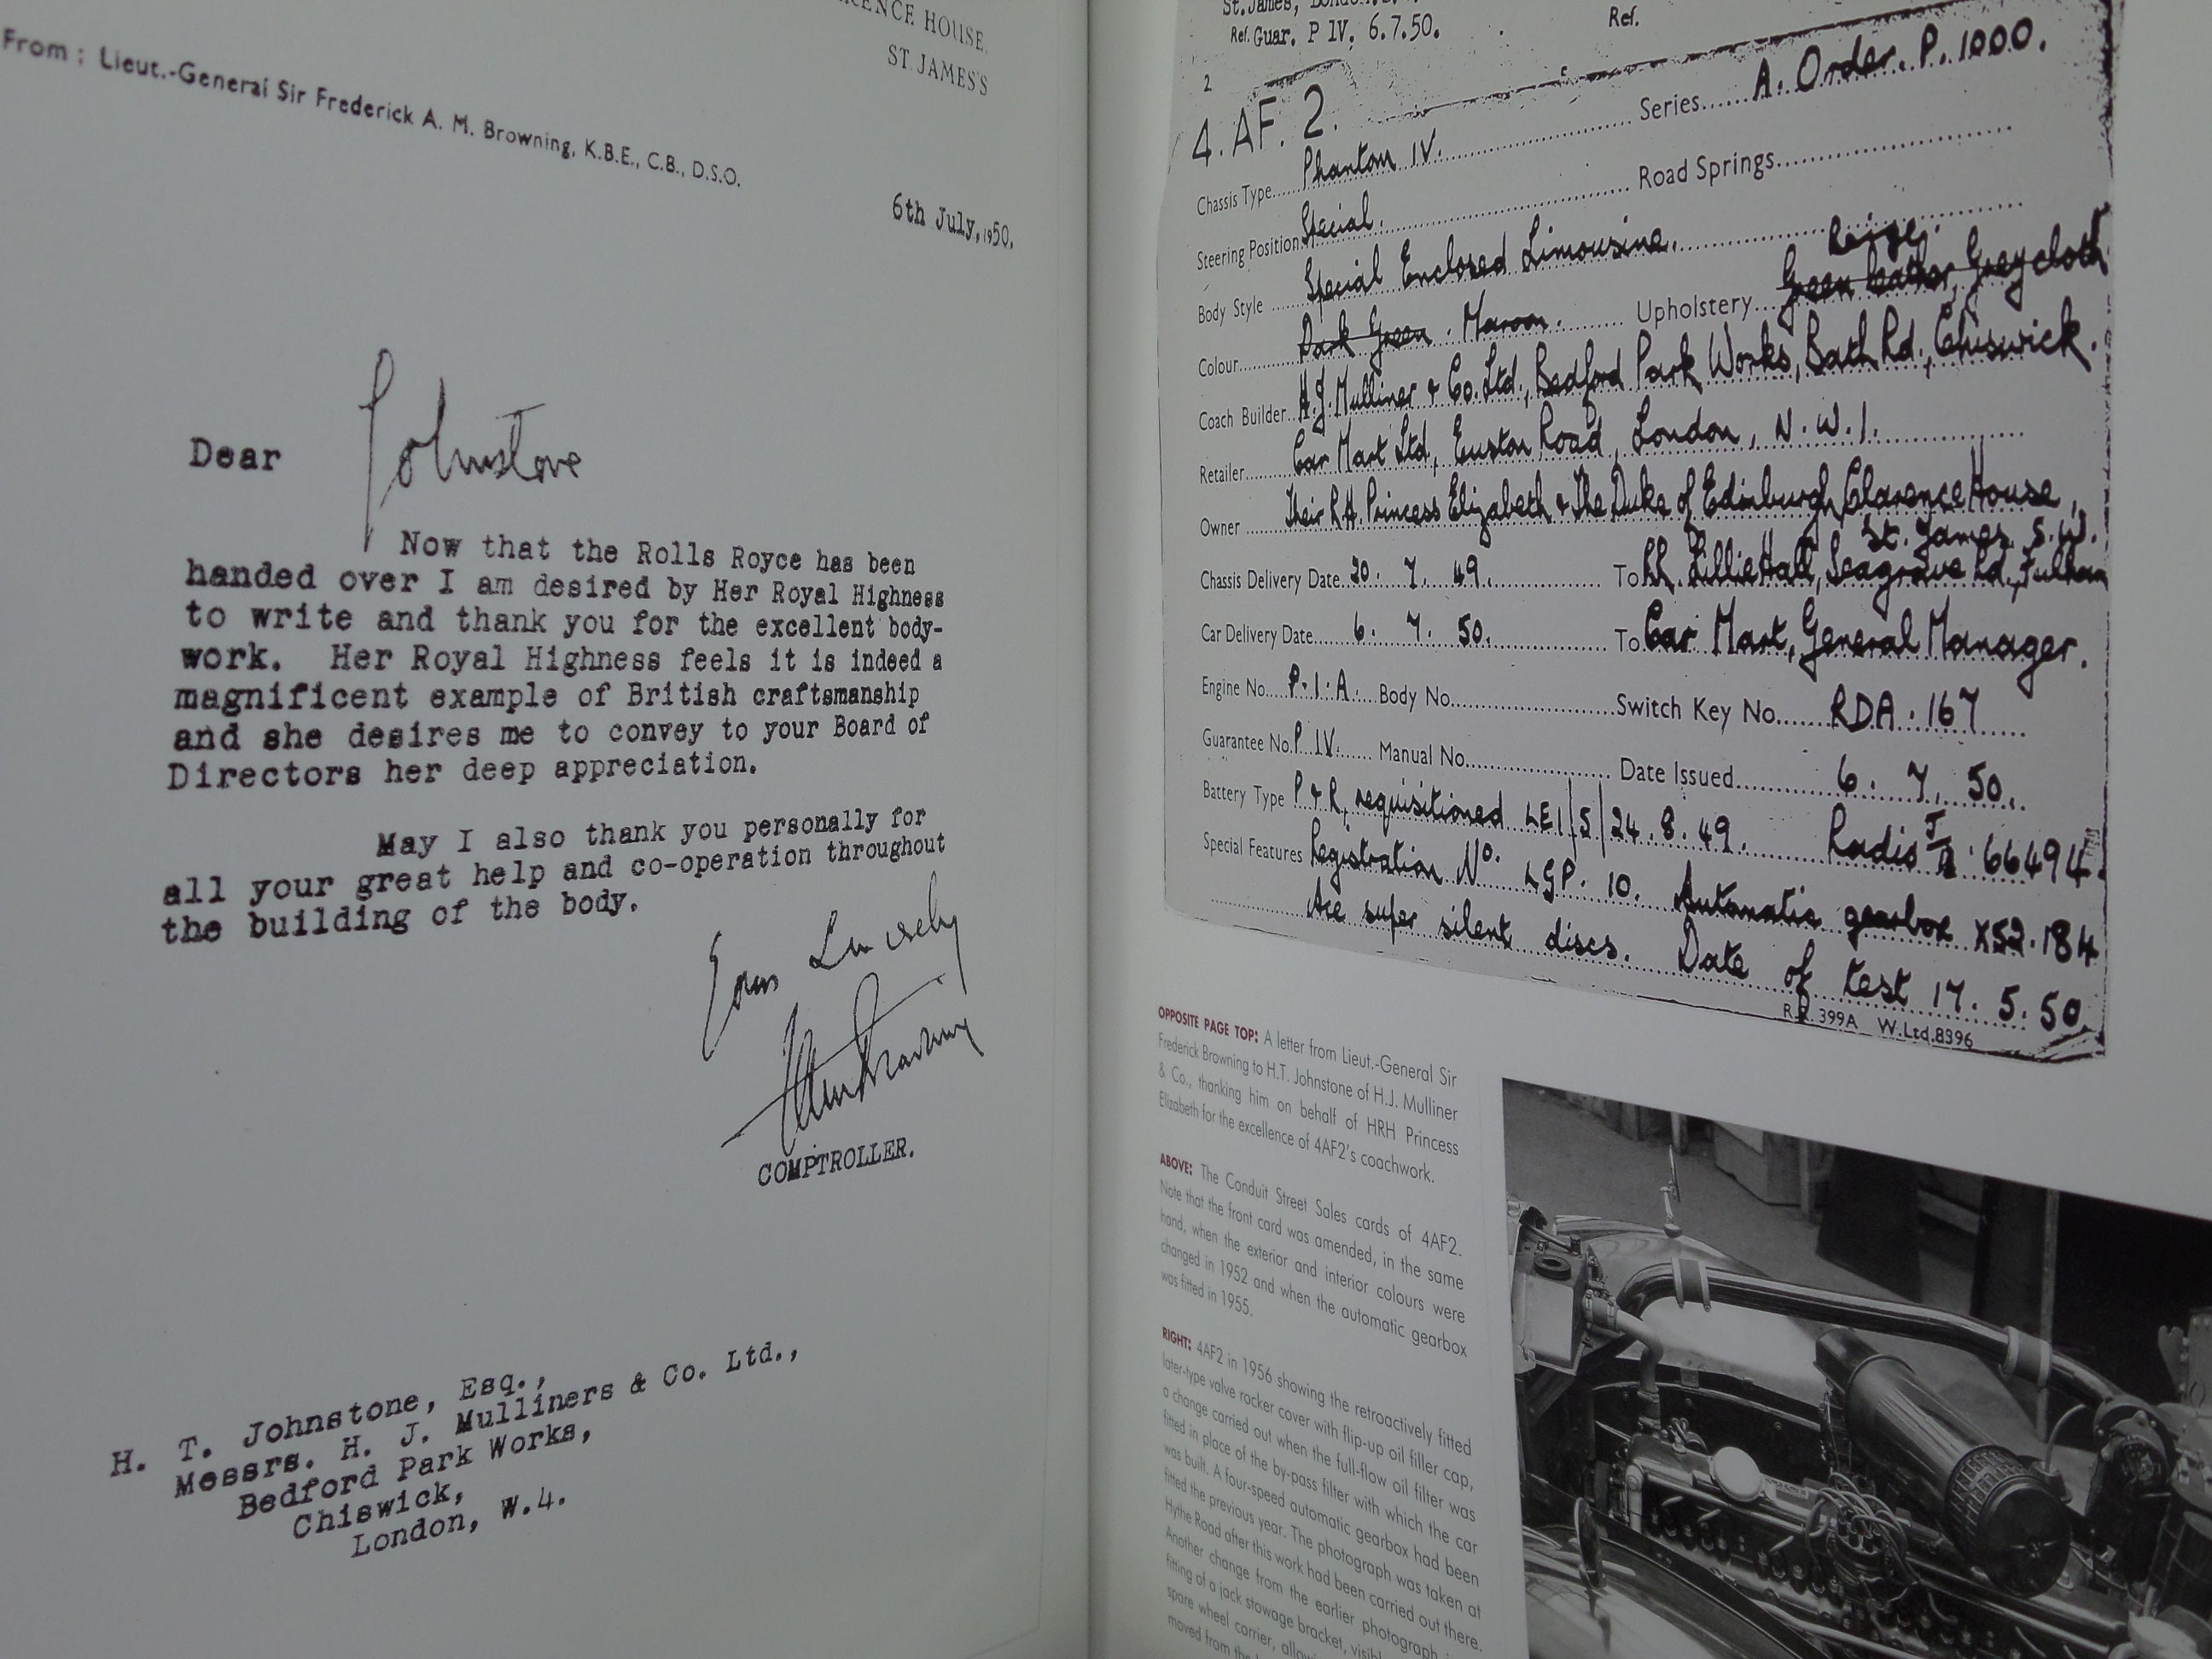 HOUSE,
ST. JAMES'S
From : Lieut.-General Sir Frederick A. M. Browning, K.B.E., C.B., D.S.O.
6th July, 1950.
Dear Johnstone
Now that the Rolls Royce has been
handed over I am desired by Her Royal Highness
to write and thank you for the excellent body-
work. Her Royal Highness feels it is indeed a
magnificent example of British craftsmanship
and she desires me to convey to your Board of
Directors her deep appreciation.
May I also thank you personally for
all your great help and co-operation throughout
the building of the body.
Yours Sincerely
COMPTROLLER.
H. T. Johnstone, Esq.,
Messrs. H. J. Mulliners & Co. Ltd.,
Bedford Park Works,
Chiswick,
London, W.4.
St. James,
Ref. Guar. P IV. 6.7.50. Ref.
2
4.AF.2. Series A. Order. P. 1000.
Chassis Type Phantom IV. Road Springs
Steering Position Special.
Body Style Special Enclosed Limousine. Beige.
Colour Dark Green. Maroon. Upholstery Green leather, Grey cloth
Coach Builder H.J. Mulliner & Co. Ltd., Bedford Park Works, Bath Rd., Chiswick.
Retailer Car Mart Ltd, Euston Road, London, N.W.1.
Owner Their R.H. Princess Elizabeth & The Duke of Edinburgh, Clarence House,
St. James. S.W.
Chassis Delivery Date 20. 7. 49. To Lillie Hall, Seagrave Rd, Fulham
Car Delivery Date 6. 7. 50. To Car Mart, General Manager.
Engine No. P.1.A. Body No. Switch Key No. RDA. 167
Guarantee No. P. IV. Manual No. Date Issued 6. 7. 50.
Battery Type P & R. requisitioned LE1/5/24.8.49. Radio 66494.
Special Features Registration No. LGP. 10. Automatic gearbox X52.184
Ace super silent discs. Date of test 17. 5. 50
R.R. 399A W.Ltd.8396
OPPOSITE PAGE TOP: A letter from Lieut.-General Sir
Frederick Browning to H.T. Johnstone of H.J. Mulliner
& Co., thanking him on behalf of HRH Princess
Elizabeth for the excellence of 4AF2's coachwork.
ABOVE: The Conduit Street Sales cards of 4AF2.
Note that the front card was amended, in the same
hand, when the exterior and interior colours were
changed in 1952 and when the automatic gearbox
was fitted in 1955.
RIGHT: 4AF2 in 1956 showing the retroactively fitted
later-type valve rocker cover with flip-up oil filler cap,
a change carried out when the full-flow oil filter was
fitted in place of the by-pass filter with which the car
was built. A four-speed automatic gearbox had been
fitted the previous year. The photograph was taken at
Hythe Road after this work had been carried out there.
Another change from the earlier photograph
fitting of a jack stowage bracket,
spare wheel carrier,
moved from the